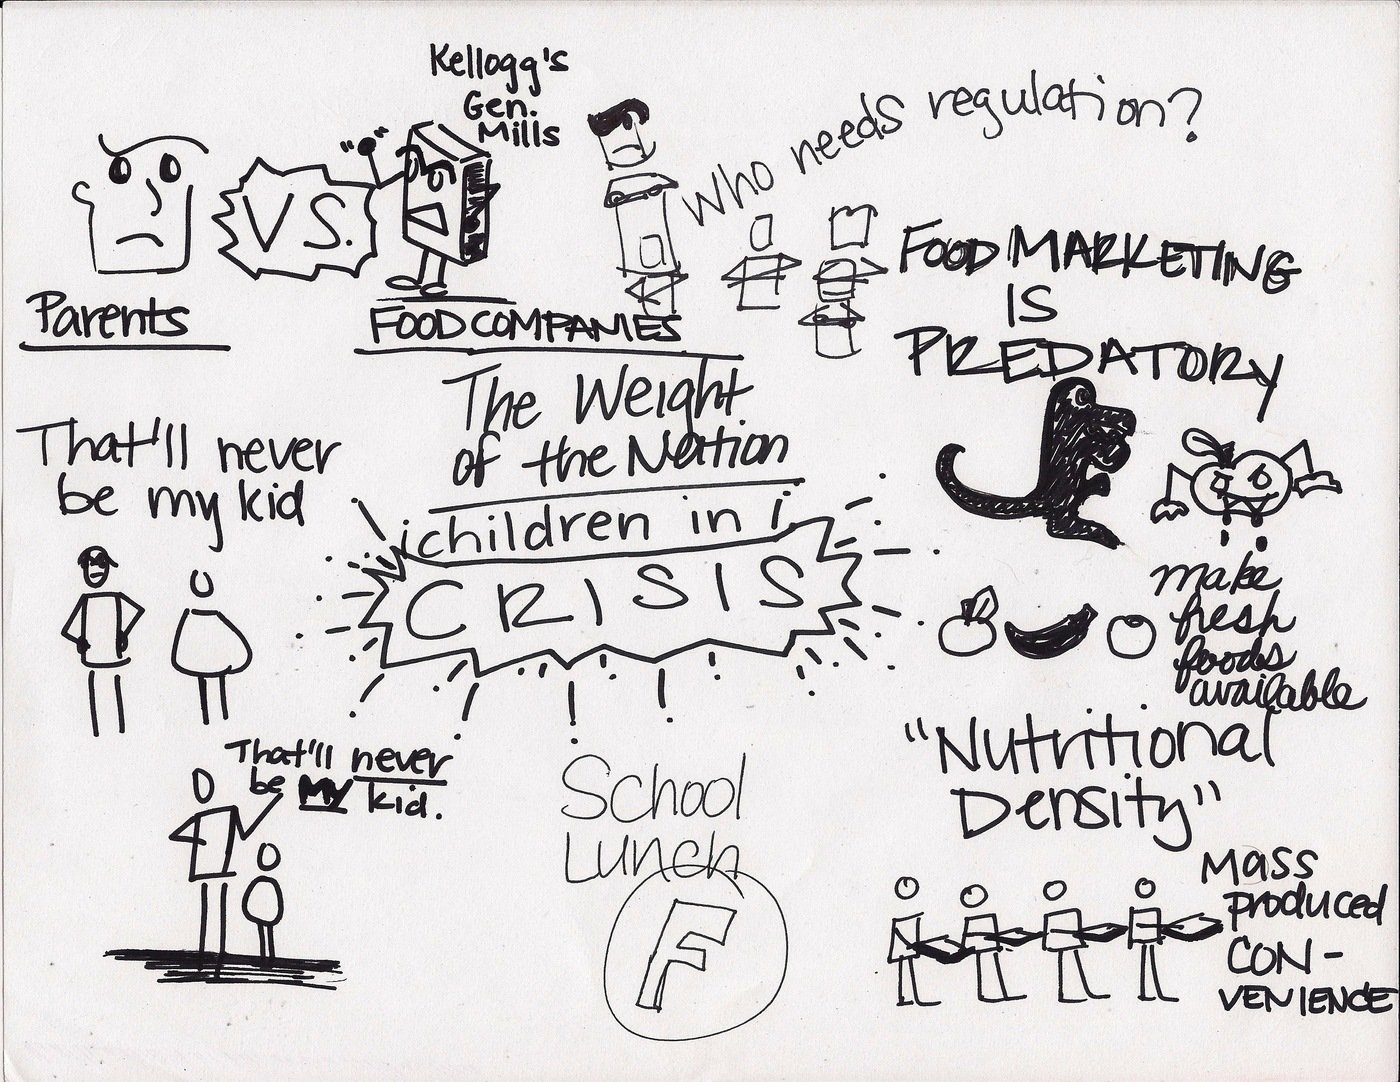 Kellogg's
Gen.
Mills
Who needs regulation?
VS.
Parents
FOOD COMPANIES
FOOD MARKETING
IS
PREDATORY
The Weight
of the Nation
children in
CRISIS
That'll never
be my kid
That'll never
be MY kid.
make
fresh
foods
available
School
Lunch
F
"Nutritional
Density"
Mass
produced
CON-
VENIENCE